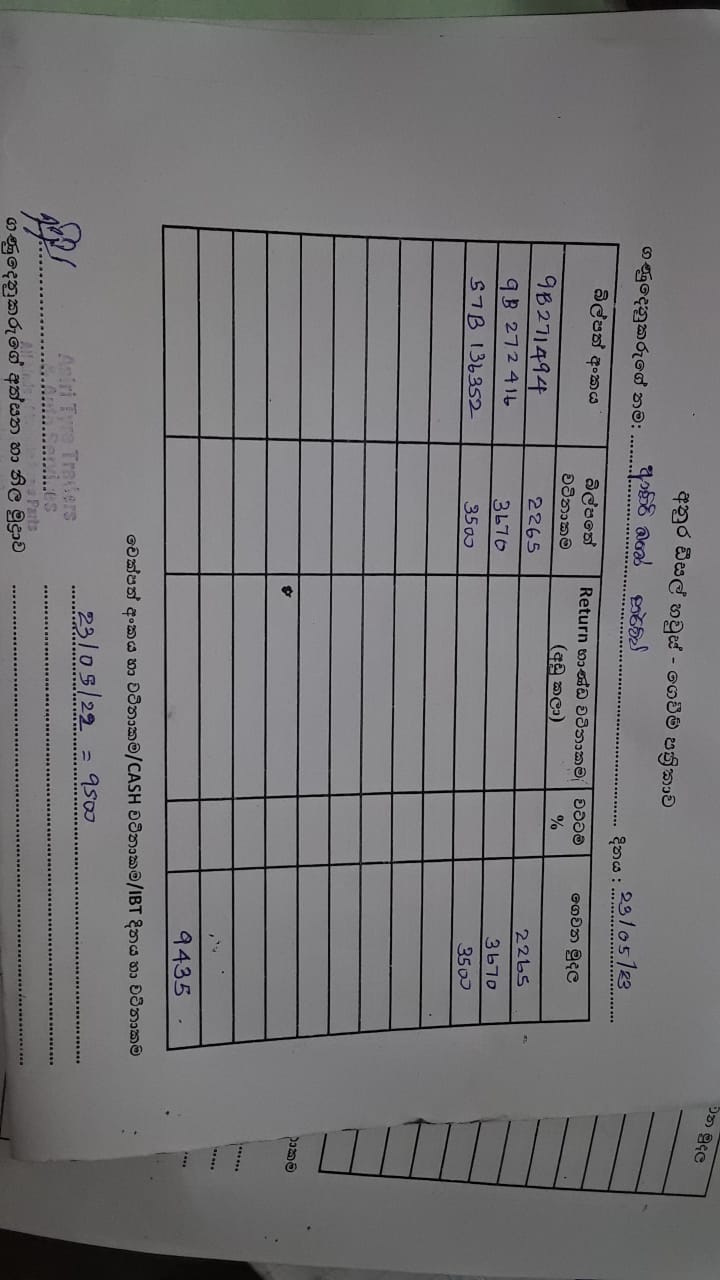 අනුර ඩීසල් හවුස් - ගෙවීම් පත්‍රිකාව
ගණුදෙනුකරුගේ නම: දිනය : 23/05/23
බිල්පත් අංකය බිල්පතේ වටිනාකම Return භාණ්ඩ වටිනාකම (අඩු කලා) වට්ටම් % ගෙවන මුදල
9B271494 2265 2265
9B 272416 3670 3670
57B 136352 3500 3500
9435
චෙක්පත් අංකය හා වටිනාකම/CASH වටිනාකම/IBT දිනය හා වටිනාකම
23/05/22 = 9500
Asiri Tyre Traders
& Auto Services
ගණුදෙනුකරුගේ අත්සන හා නිල මුද්‍රාව
ගෙවන මුදල